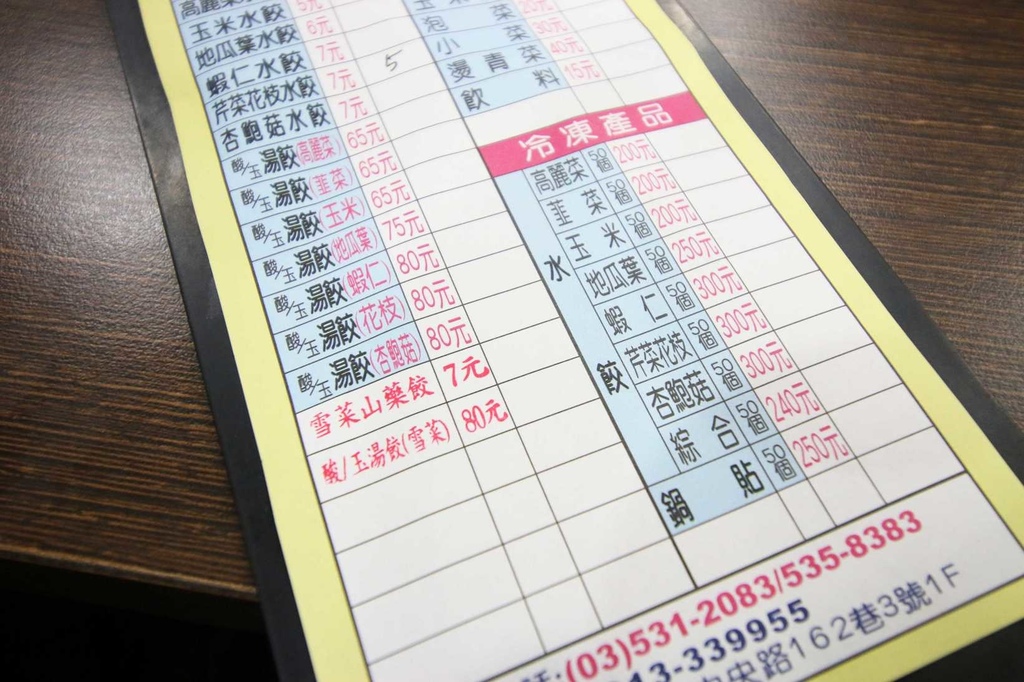 高麗菜水餃 5元
玉米水餃 6元
地瓜葉水餃 7元
蝦仁水餃 7元
芹菜花枝水餃 7元
杏鮑菇水餃 65元
酸/玉湯餃(高麗菜) 65元
酸/玉湯餃(韮菜) 65元
酸/玉湯餃(玉米) 75元
酸/玉湯餃(地瓜葉) 80元
酸/玉湯餃(蝦仁) 80元
酸/玉湯餃(花枝) 80元
酸/玉湯餃(杏鮑菇)
雪菜山藥餃 7元
酸/玉湯餃(雪菜) 80元
5
泡菜 30元
小菜 40元
燙青菜 15元
飲料
冷凍產品
水餃
高麗菜 50個 200元
韮菜 50個 200元
玉米 50個 200元
地瓜葉 50個 250元
蝦仁 50個 300元
芹菜花枝 50個 300元
杏鮑菇 50個 300元
綜合 50個 240元
鍋貼 50個 250元
(03)531-2083/535-8383
13-339955
央路162巷3號1F